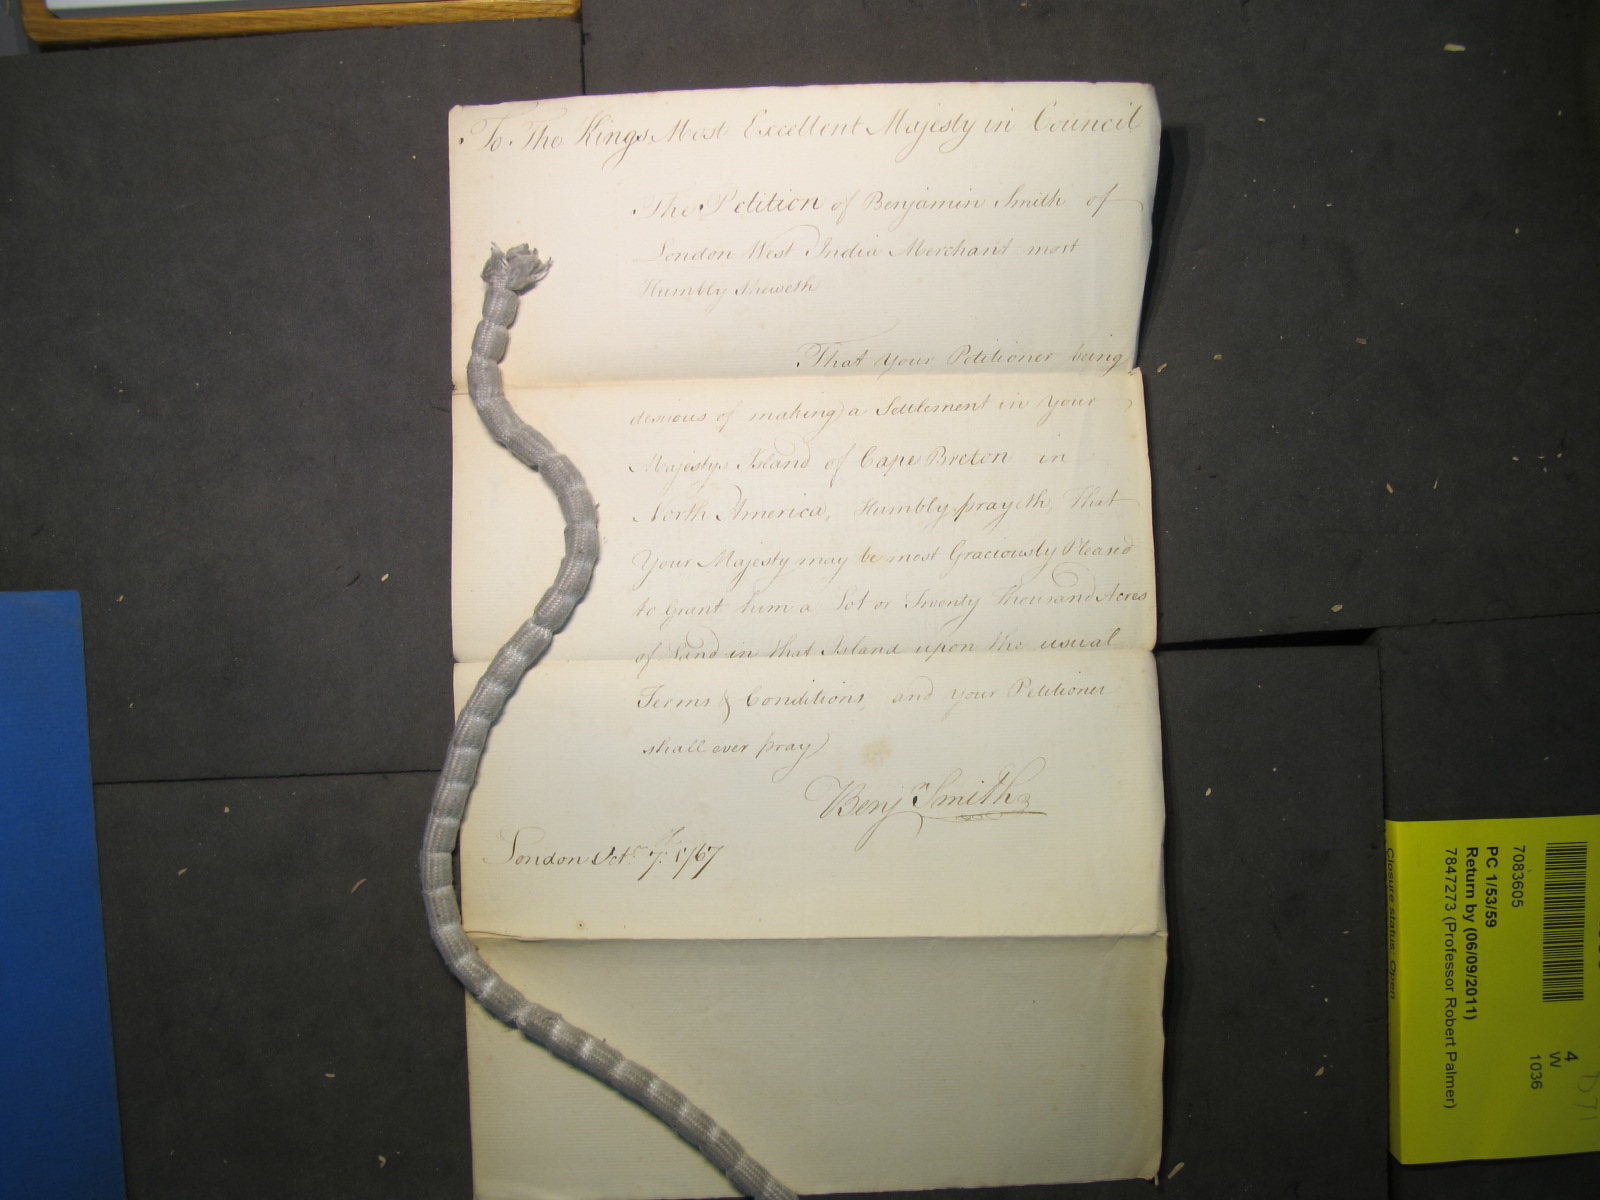 To The Kings Most Excellent Majesty in Council
The Petition of Benjamin Smith of
London West India Merchant most
Humbly Sheweth
That your Petitioner being
desirous of making a Settlement in your
Majestys Island of Cape Breton in
North America, Humbly prayeth, That
Your Majesty may be most Graciously Pleased
to Grant him a Lot or Twenty Thousand Acres
of Land in that Island upon the usual
Terms & Conditions, and your Petitioner
shall ever pray
Benjn Smith
London Octr 7th 1767
7083605
PC 1/53/59
Return by (06/09/2011)
7847273 (Professor Robert Palmer)
Closure status: Open
4
W
1036